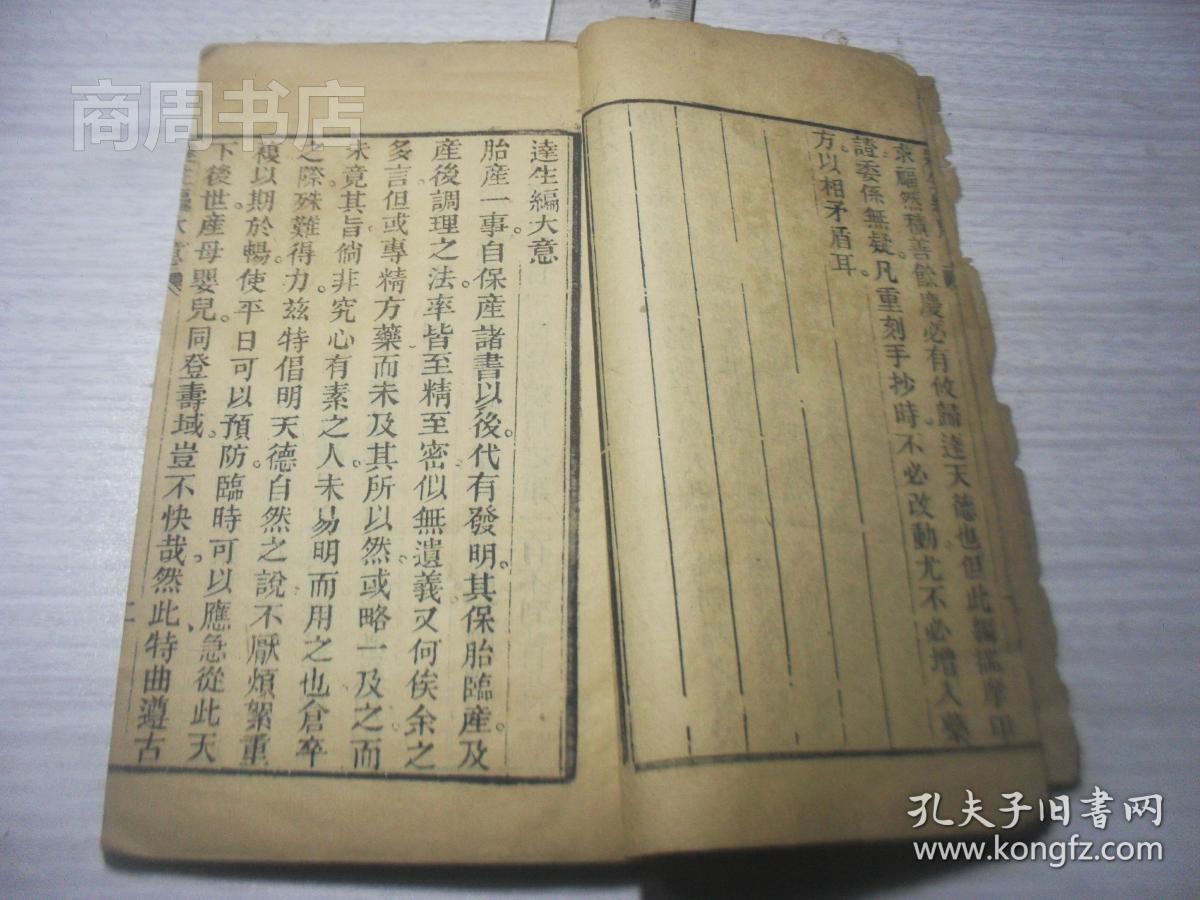 求福然積善餘慶必有攸歸達天德也但此編
證委係無疑凡重刻手抄時不必改動尤不必增入藥
方以相矛盾耳
達生編大意
胎產一事。自保產諸書以後。代有發明。其保胎臨產。及
產後調理之法。率皆至精至密。似無遺義。又何俟余之
多言。但或專精方藥。而未及其所以然。或略一及之而
未竟其旨。倘非究心有素之人。未易明而用之也。倉卒
之際。殊難得力。茲特倡明天德自然之說。不厭煩絮。重
複以期於暢。使平日可以預防。臨時可以應急。從此天
下後世產母嬰兒。同登壽域。豈不快哉。然此特曲遵古
達生編大意
二
商周书店
孔夫子旧书网
www.kongfz.com